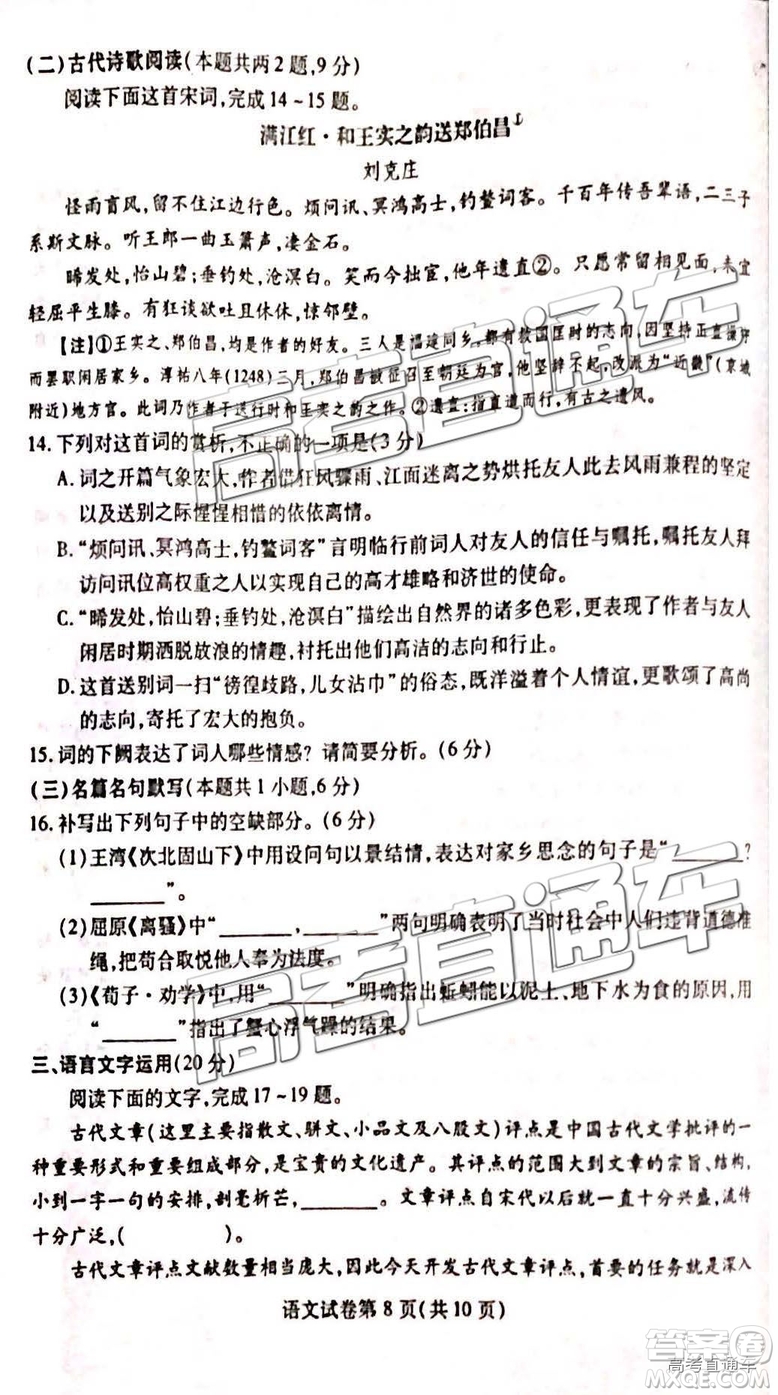 (二)古代诗歌阅读(本题共两2题,9分)
阅读下面这首宋词,完成14~15题。
满江红·和王实之韵送郑伯昌①
刘克庄
怪雨盲风,留不住江边行色。烦问讯、冥鸿高士,钓鳌词客。千百年传吾辈语,二三子
系斯文脉。听王郎一曲玉箫声,凄金石。
晞发处,怡山碧;垂钓处,沧溟白。笑而今拙宦,他年遗直②。只愿常留相见面,未宜
轻屈平生膝。有狂谈欲吐且休休,惊邻壁。
【注】①王实之、郑伯昌,均是作者的好友。三人是福建同乡。都有救国匡时的志向,因坚持正直操守
而罢职闲居家乡。淳祐八年(1248)三月,郑伯昌被征召至朝廷为官,他坚辞不起,改派为“近畿”(京城
附近)地方官。此词乃作者于送行时和王实之之作。②遗直:指直道而行,有古之遗风。
14.下列对这首词的赏析,不正确的一项是(3分)
A.词之开篇气象宏大,作者借狂风骤雨、江面迷离之势烘托友人此去风雨兼程的坚定
以及送别之际惺惺相惜的依依离情。
B.“烦问讯、冥鸿高士,钓鳌词客”言明临行前词人对友人的信任与嘱托,嘱托友人拜
访问讯位高权重之人以实现自己的高才雄略和济世的使命。
C.“晞发处,怡山碧;垂钓处,沧溟白”描绘出自然界的诸多色彩,更写出了作者与友人
闲居时期洒脱放浪的情趣,衬托出他们高洁的志向和行止。
D.这首送别词一扫“彷徨歧路,儿女沾巾”的俗态,既洋溢着个人情谊,更歌颂了高尚
的志向,寄托了宏大的抱负。
15.词的下阙表达了词人哪些情感？请简要分析。(6分)
(三)名篇名句默写(本题共1小题,6分)
16.补写出下列句子中的空缺部分。(6分)
(1)王湾《次北固山下》中用设问句以景结情,表达对家乡思念的句子是“______？
______”。
(2)屈原《离骚》中“______,______”两句明确表明了当时社会中人们违背道德准
绳,把苟合取悦他人奉为法度。
(3)《荀子·劝学》中,用“______”明确指出蚯蚓能以泥土、地下水为食的原因,用
“______”指出了蟹心浮气躁的结果。
三、语言文字运用(20分)
阅读下面的文字,完成17~19题。
古代文章(这里主要指散文、骈文、小品文及八股文)评点是中国古代文学批评的一
种重要形式和重要组成部分,是宝贵的文化遗产。其评点的范围大到文章的宗旨、结构,
小到一字一句的安排,剖毫析芒,______。文章评点自宋代以后就一直十分兴盛,流传
十分广泛,(　　　　)。
古代文章评点文献数量相当庞大,因此今天开发古代文章评点,首要的任务就是深入
语文试卷第8页(共10页)
高考直通车
高考直通车
高考直通车
答案圈
MXQE.COM